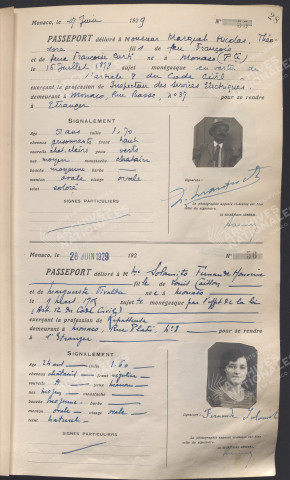 24
Monaco, le Juin 1929 N° 55
PASSEPORT délivré à Monsieur Marquet Nicolas, Théo-
dore fils de feu François
et de feue Françoise Curti né à Monaco (Pté)
le 15 Juillet 1878 sujet monégasque
l'article 8 du Code Civil
exerçant la profession de Inspecteur des Services Electriques
demeurant à Monaco, Rue Basse, n° 37 pour se rendre
à Etranger
SIGNALEMENT
âge 51 ans taille 1,70
cheveux grisonnants front haut
sourcils chat. claire yeux verts
nez moyen moustache chatain
bouche moyenne barbe
menton ovale visage ovale
teint coloré
SIGNES PARTICULIERS
Signature :
La photographie apposée ci-dessus est bien
celle du titulaire.
LE SECRÉTAIRE GÉNÉRAL,
Monaco, le 28 JUIN 1929 192 N° 56
PASSEPORT délivré à Mme Solamito Fernande Honorine
fille de Louis
et de Marguerite née à Monaco
le 9 Mars 1905 sujette monégasque par l'effet de la loi
(Art. 12 du Code Civil)
exerçant la profession de Répétitrice
demeurant à Monaco, Rue Plati n° 8 pour se rendre
à l'Etranger
SIGNALEMENT
âge 24 ans taille 1.60
cheveux châtains front régulier
sourcils d° yeux marron
nez moyen moustache
bouche moyenne barbe
menton ovale visage ovale
teint naturel
SIGNES PARTICULIERS
Signature : Fernande Solamito
La photographie apposée ci-dessus est bien
celle du titulaire.
LE SECRÉTAIRE GÉNÉRAL,